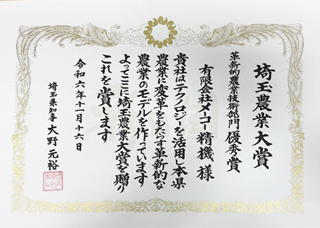 埼玉農業大賞
革新的農業技術部門 優秀賞
有限会社メイコー精機 様
貴社はテクノロジーを活用し本県
農業に変革をもたらす革新的な
農業のモデルを作っています
よってここに埼玉農業大賞を贈り
これを賞します
令和六年十一月十六日
埼玉県知事 大野元裕